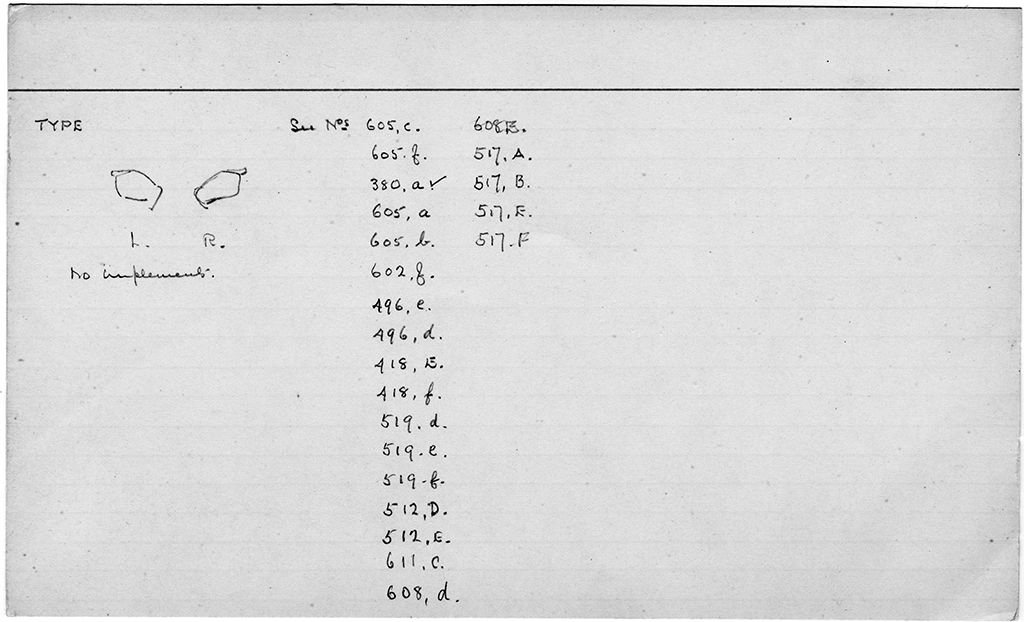 TYPE See Nos 605, c. 608E.
605. f. 517, A.
380, a ✓ 517, B.
605, a 517, E.
L. R. 605, b. 517. F
No implements. 602, f.
496, e.
496, d.
418, E.
418, f.
519, d.
519. e.
519. f.
512, D.
512, E.
611, c.
608, d.